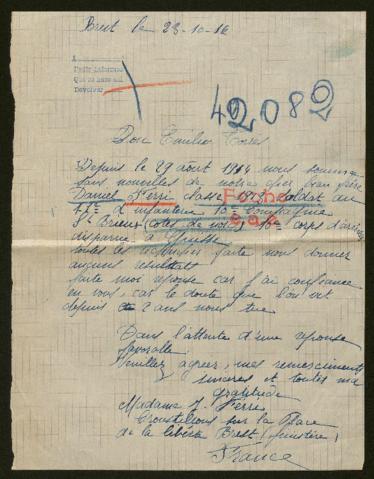 Brest le 23-10-16
A
Devolver
42082
Don Emilio Torres
Depuis le 29 août 1914 nous sommes
sans nouvelles de notre cher beau frère
Daniel Ferré classe 1913 soldat au
d'infanterie 10e Compagnie
St Brieuc (cotes du nord) corps d'armée
disparu à
toutes les recherches faite nous donner
aucuns résultat
faite moi réponse car j'ai confiance
en vous, car le doute que l'on vit
depuis 2 ans nous tue
Dans l'attente d'une réponse
favorable
Veuillez agréer, mes remerciments
sincères et toutes ma
gratitude
Madame J. Ferre
sur la Place
de la liberté Brest (finistère)
France
Ficha